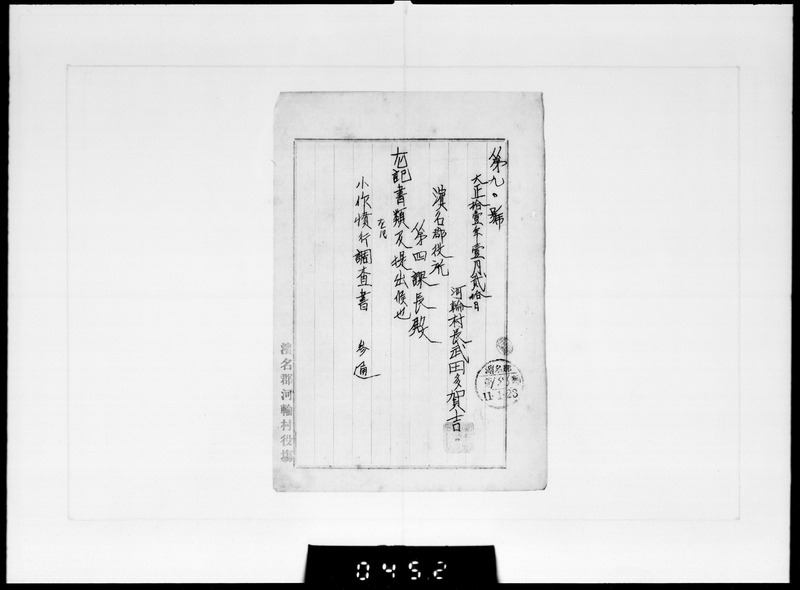 第九〇號
大正拾壹年壹月貳拾日
河輪村長武田多賀吉
濱名郡役所
第四課長殿
左記書類及提出候也
左記
小作慣行調査書 參通
濱名郡河輪村役塲
濱名郡
11.1.23
0452